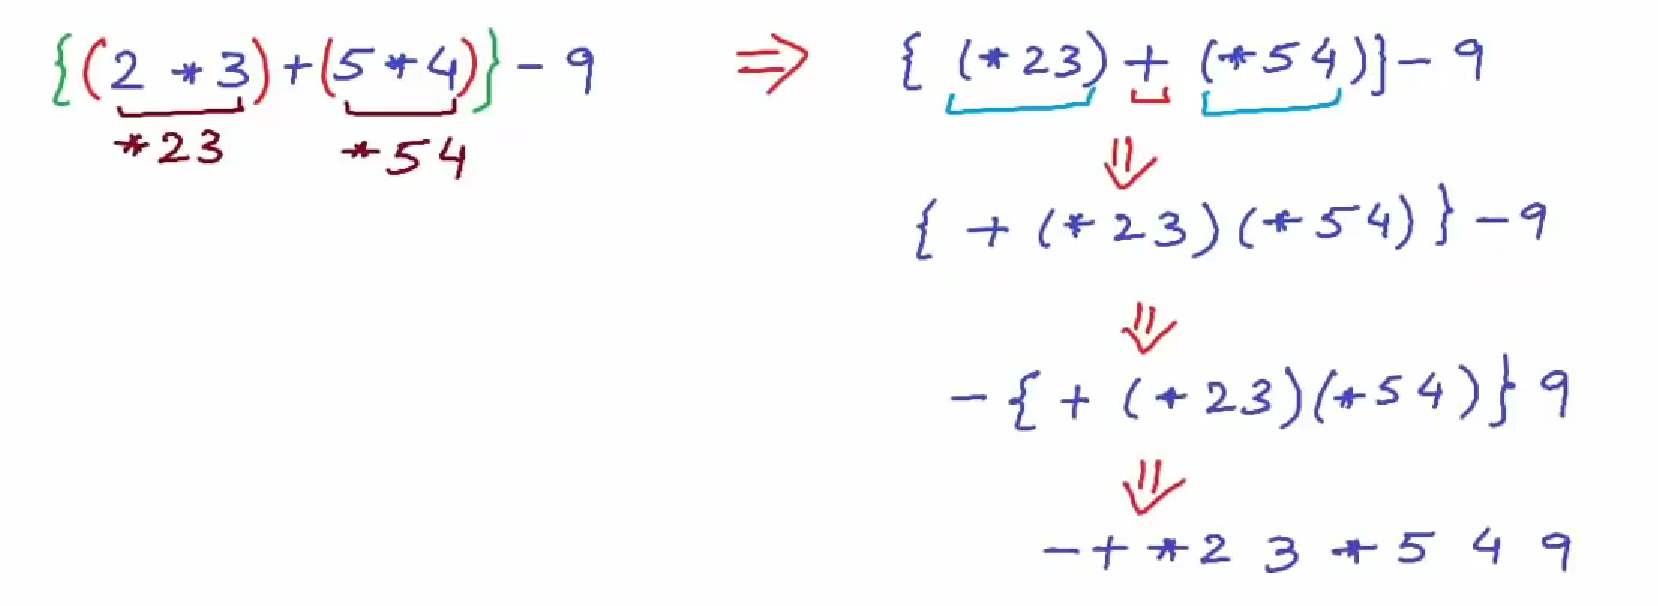 {(2 * 3)+(5 * 4)} - 9 ⇒ { (* 23) + (* 54)} - 9
*23 *54
⇓
{ + (* 23) (* 54) } - 9
⇓
- { + (* 23) (* 54) } 9
⇓
- + * 2 3 * 5 4 9